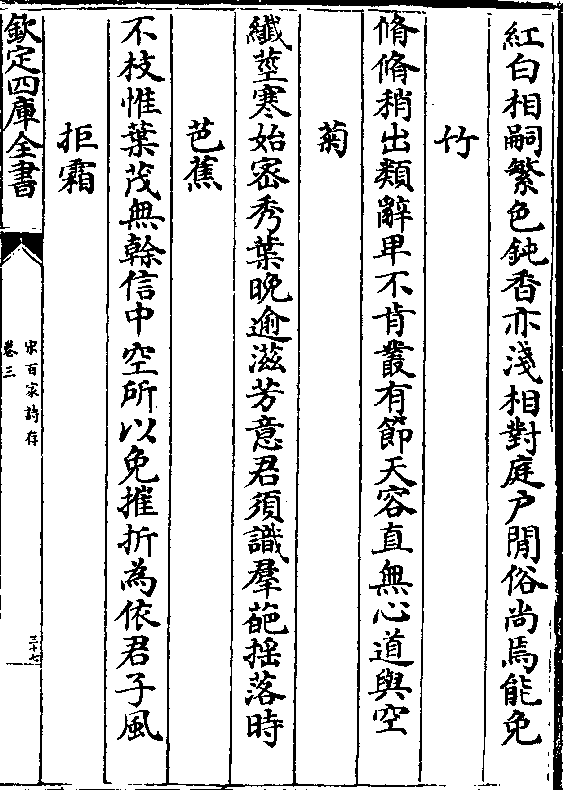 紅白相嗣繁色鈍香亦淺相對庭户閒俗尚焉能免
竹
脩脩稍出類辭卑不肯叢有節天容直無心道與空
菊
纖莖寒始宻秀葉晚逾滋芳意君須識羣葩揺落時
芭蕉
不枝惟葉茂無榦信中空所以免摧折為依君子風
拒霜
欽定四庫全書
宋百家詩存
卷三
三十七